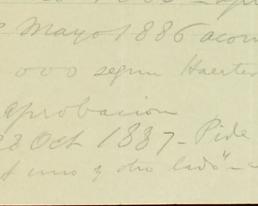 Mayo 1886 acom
000 segun Haerter
aprobacion
28 Oct 1887 - Pide
uno y otro lado" -